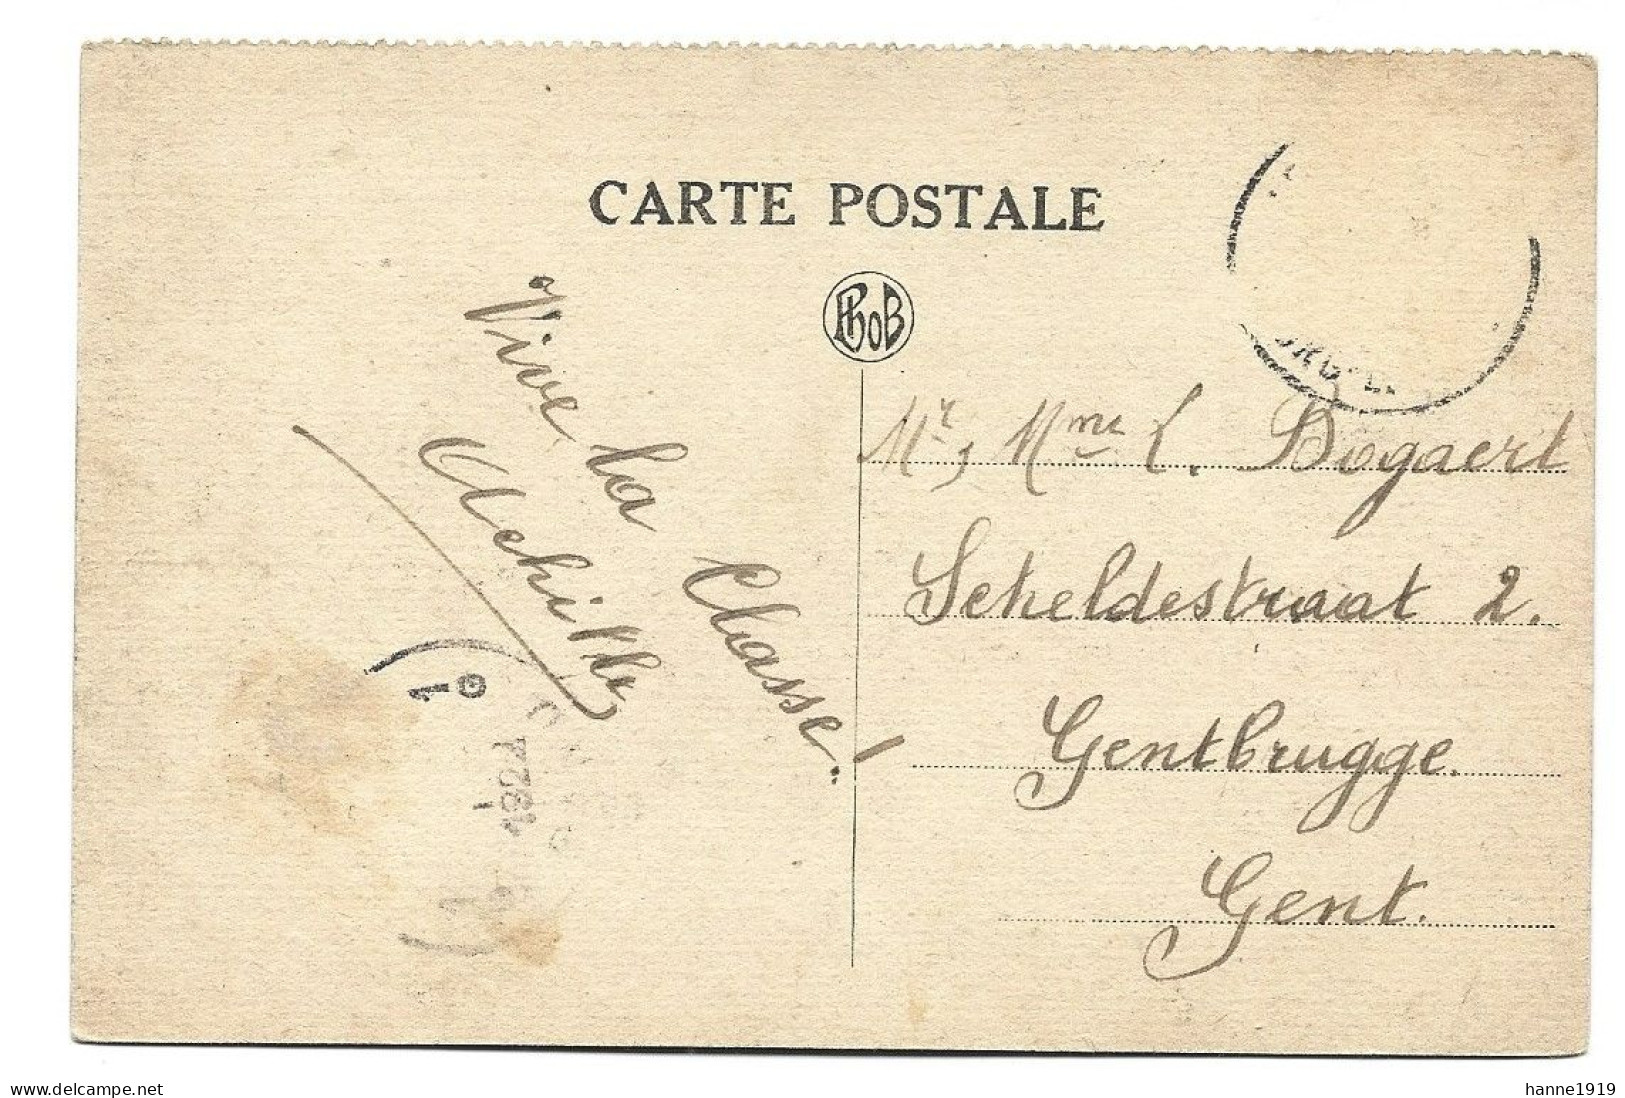 CARTE POSTALE
PhoB
Vive la Chasse!
Achille
Mr, Mme L. Bogaert
Scheldestraat 2.
Gentbrugge.
Gent.
1924
www.delcampe.net
hanne1919